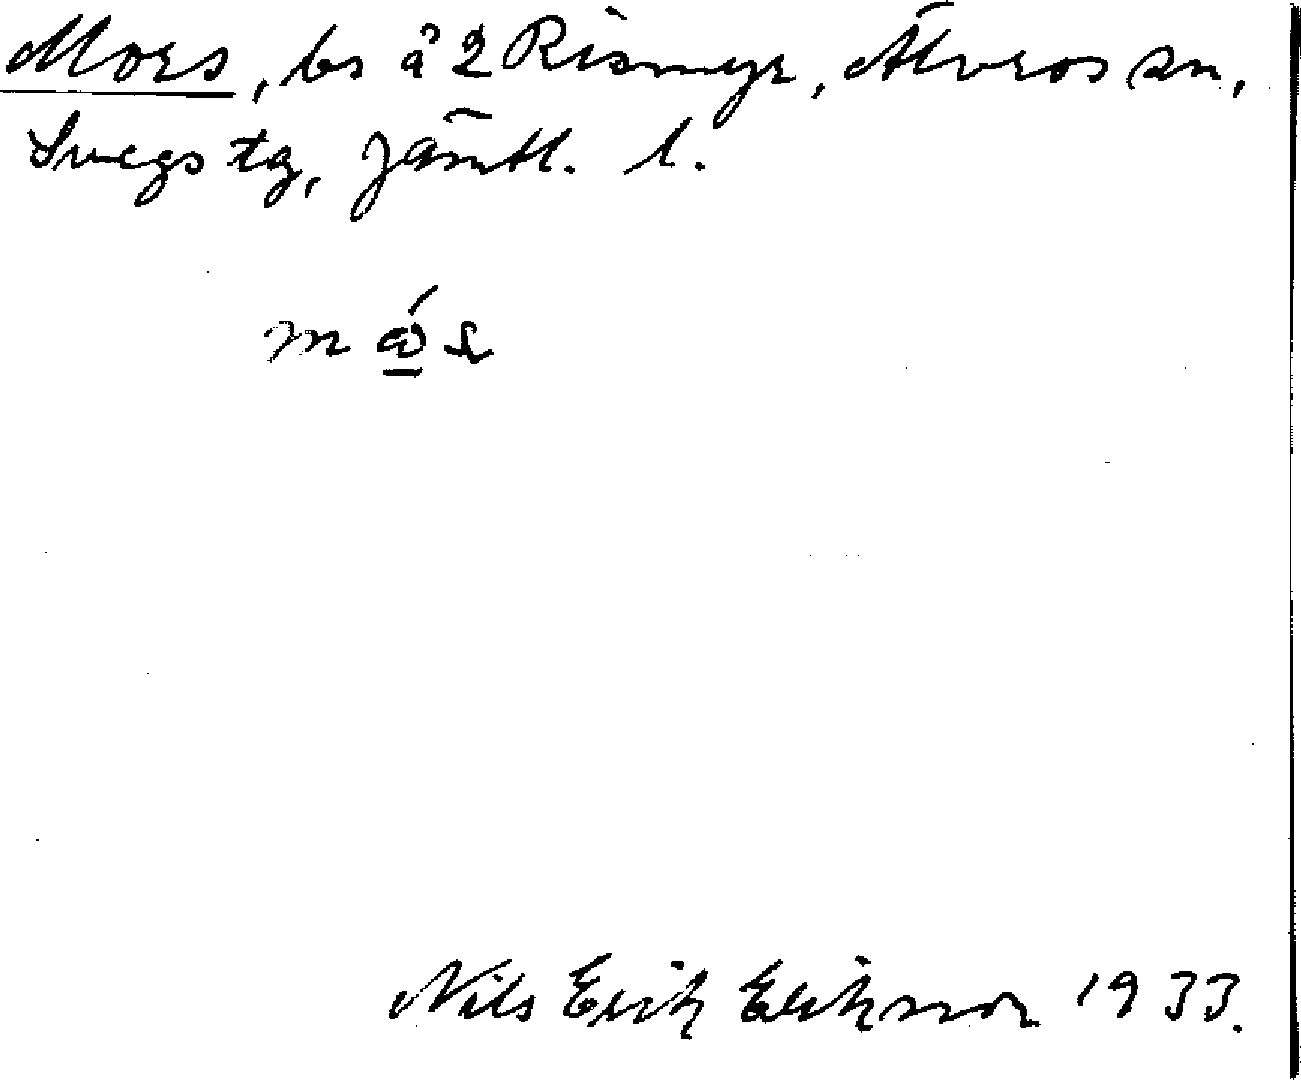 Mors, bs å 2 Rismyr, Älvros sn,
Svegs tg, Jämtl. l.
Nils Erik Eriksson 1933.